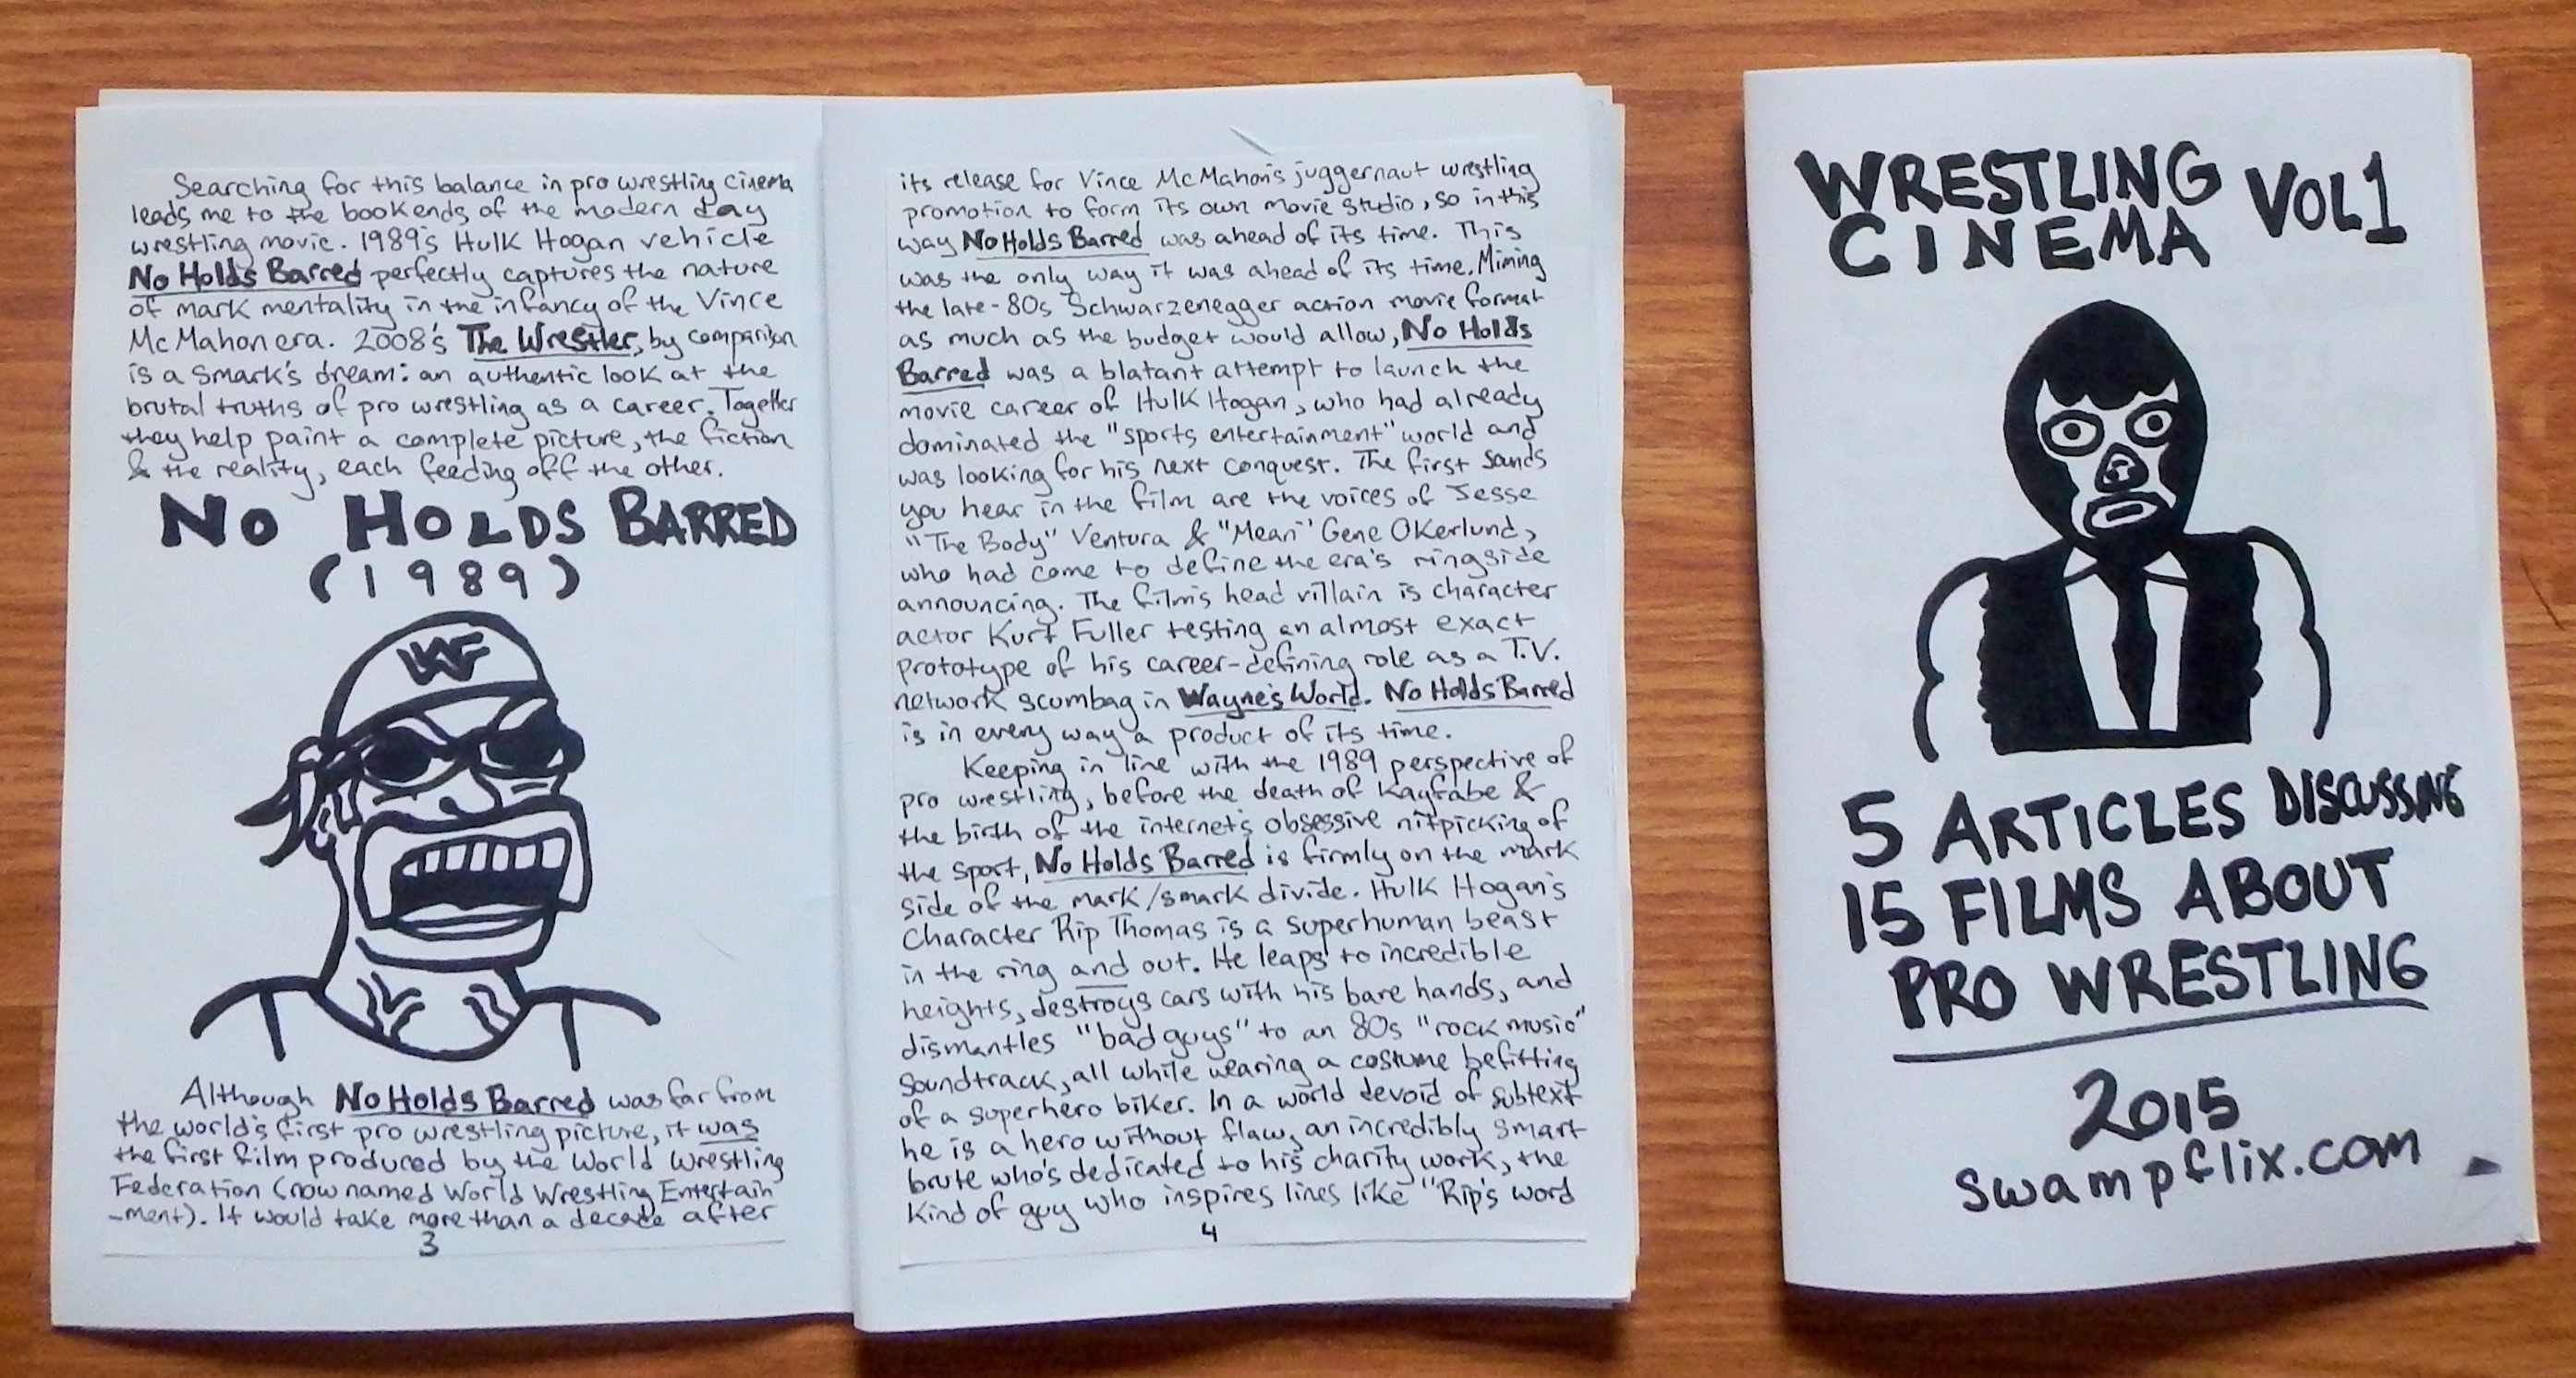 Searching for this balance in pro wrestling cinema
leads me to the bookends of the modern day
wrestling movie. 1989's Hulk Hogan vehicle
No Holds Barred perfectly captures the nature
of mark mentality in the infancy of the Vince
McMahon era. 2008's The Wrestler, by comparison
is a smark's dream: an authentic look at the
brutal truths of pro wrestling as a career. Together
they help paint a complete picture, the fiction
& the reality, each feeding off the other.
NO HOLDS BARRED
(1989)
WF
Although No Holds Barred was far from
the world's first pro wrestling picture, it was
the first film produced by the World Wrestling
Federation (now named World Wrestling Entertain
-ment). It would take more than a decade after
3
its release for Vince McMahon's juggernaut wrestling
promotion to form its own movie studio, so in this
way No Holds Barred was ahead of its time. This
was the only way it was ahead of its time. Mining
the late-80s Schwarzenegger action movie format
as much as the budget would allow, No Holds
Barred was a blatant attempt to launch the
movie career of Hulk Hogan, who had already
dominated the "sports entertainment" world and
was looking for his next conquest. The first sounds
you hear in the film are the voices of Jesse
"The Body" Ventura & "Mean" Gene Okerlund,
who had come to define the era's ringside
announcing. The film's head villain is character
actor Kurt Fuller testing an almost exact
prototype of his career-defining role as a T.V.
network scumbag in Wayne's World. No Holds Barred
is in every way a product of its time.
Keeping in line with the 1989 perspective of
pro wrestling, before the death of Kayfabe &
the birth of the internet's obsessive nitpicking of
the sport, No Holds Barred is firmly on the mark
side of the mark/smark divide. Hulk Hogan's
character Rip Thomas is a superhuman beast
in the ring and out. He leaps to incredible
heights, destroys cars with his bare hands, and
dismantles "bad guys" to an 80s "rock music"
soundtrack, all while wearing a costume befitting
of a superhero biker. In a world devoid of subtext
he is a hero without flaw, an incredibly smart
brute who's dedicated to his charity work, the
kind of guy who inspires lines like "Rip's word
4
WRESTLING
CINEMA VOL 1
5 ARTICLES DISCUSSING
15 FILMS ABOUT
PRO WRESTLING
2015
swampflix.com